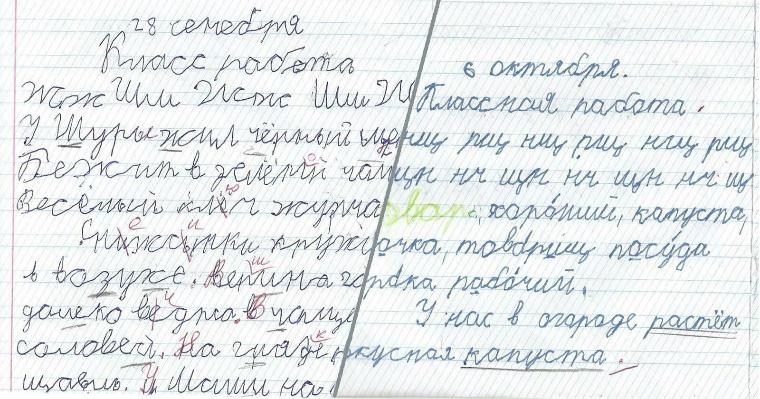 28 семебря
Класс работа
Жж Шш Жж Шш
У Шуры жил чёрный
Бежит в зелёный
Весёлый ключ журча
Снижынки круж
в возуже. Вершина го
далеко ведна. В
соловей. На
щавль. У Маши на
6 октября.
Классная работа.
нщ рщ нщ рщ нщ рщ
щн нч щн нч щн нч щ
овар, хороший, капуста,
ачка, товарищ посуда
рабочий.
У нас в огороде растёт
вкусная капуста.